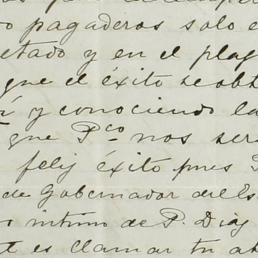 o pagaderos solo e
etado y en el pla
que el éxito se obt
y conociendo la
que Pco nos ser
feliz éxito pues P
de Gobernador del Es
intimo de P. Diaz
es llamar tu at